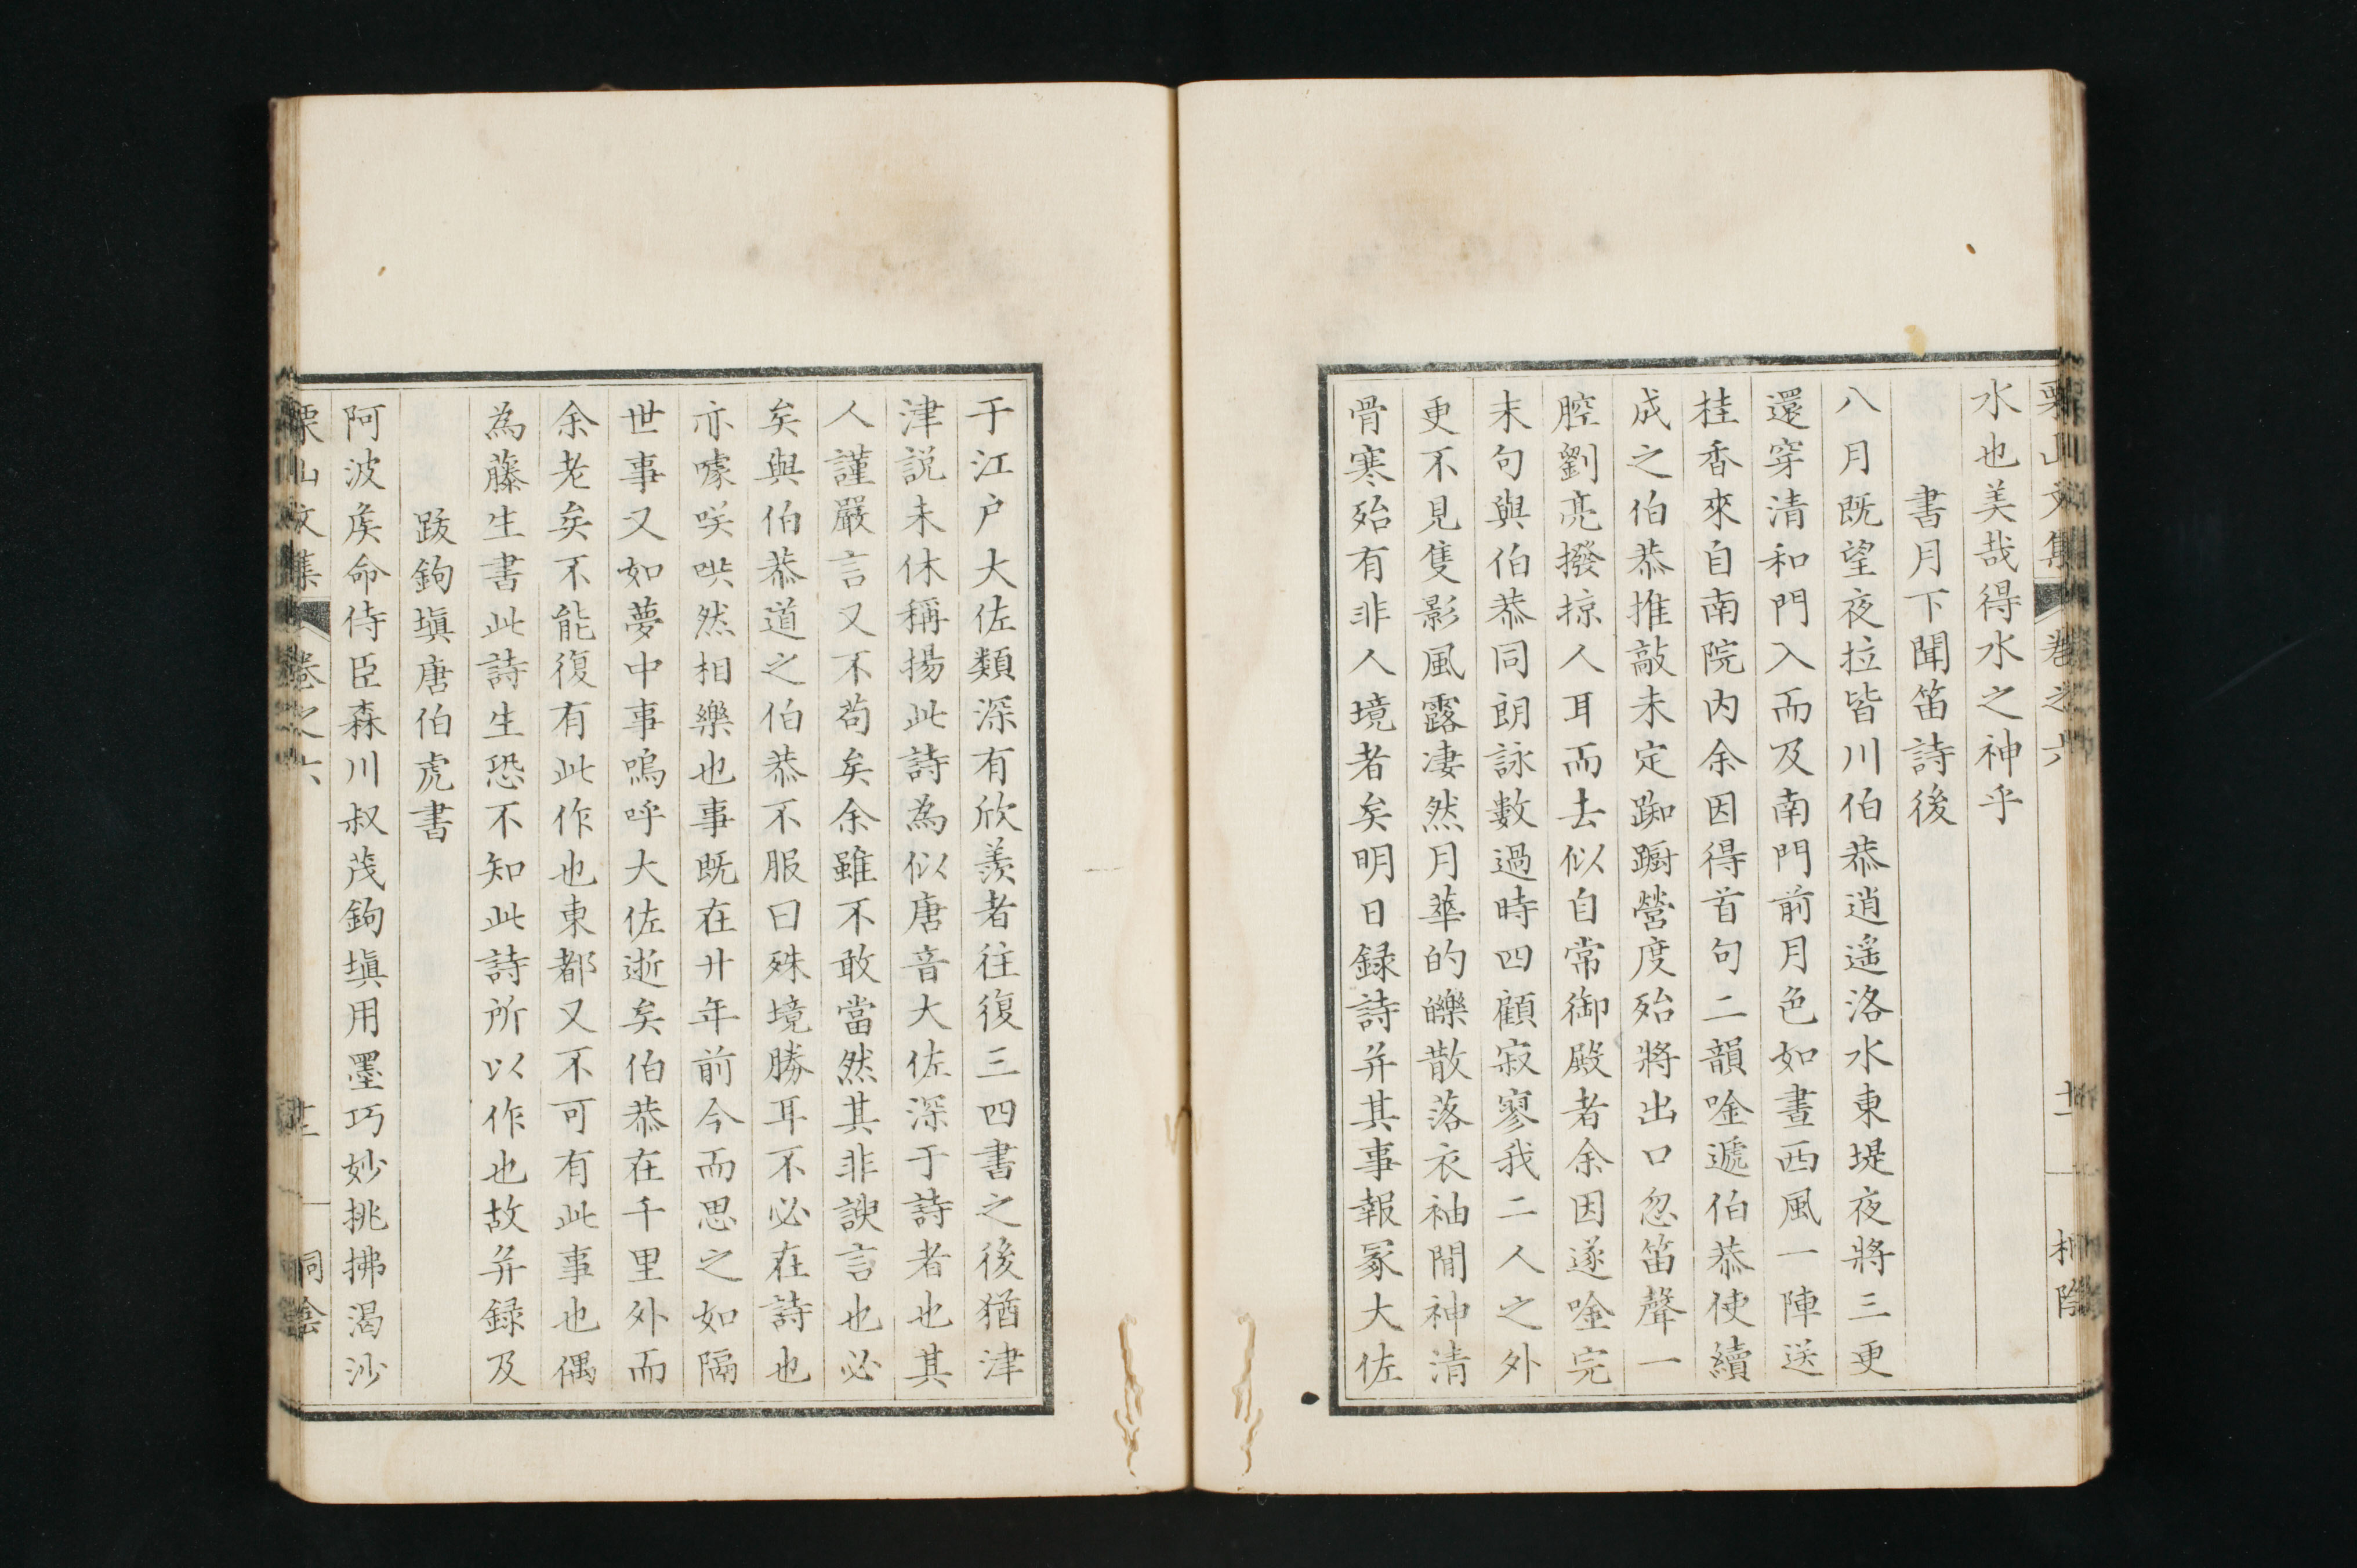 栗山文集 卷之六 十一 桐陰
水也美哉得水之神乎
書月下聞笛詩後
八月既望夜拉皆川伯恭逍遥洛水東堤夜將三更
還穿清和門入而及南門前月色如晝西風一陣送
桂香來自南院内余因得首句二韻唫遞伯恭使續
成之伯恭推敲未定踟躕營度殆將出口忽笛聲一
腔劉亮撥掠人耳而去似自常御殿者余因遂唫完
末句與伯恭同朗詠數過時四顧寂寥我二人之外
更不見隻影風露凄然月華的皪散落衣袖閒神清
骨寒殆有非人境者矣明日録詩并其事報冡大佐
于江户大佐類深有欣羨者往復三四書之後猶津
津説未休稱揚此詩為似唐音大佐深于詩者也其
人謹嚴言又不苟矣余雖不敢當然其非諛言也必
矣與伯恭道之伯恭不服曰殊境勝耳不必在詩也
亦噱咲哄然相樂也事既在廾年前今而思之如隔
世事又如夢中事嗚呼大佐逝矣伯恭在千里外而
余老矣不能復有此作也東都又不可有此事也偶
為藤生書此詩生恐不知此詩所以作也故并録及
跋鉤塡唐伯虎書
阿波矦命侍臣森川叔茂鉤塡用墨巧妙挑拂渴沙
栗山文集 卷之六 桐陰